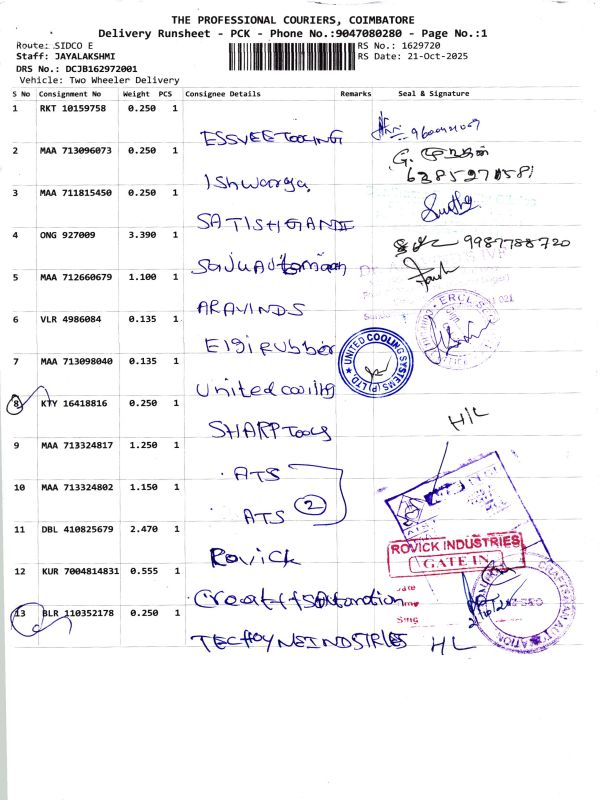 THE PROFESSIONAL COURIERS, COIMBATORE
Delivery Runsheet - PCK - Phone No.:9047080280 - Page No.:1
Route: SIDCO E
RS No.: 1629720
Staff: JAYALAKSHMI
RS Date: 21-Oct-2025
DRS No.: DCJB162972001
Vehicle: Two Wheeler Delivery
S No Consignment No Weight PCS Consignee Details Remarks Seal & Signature
1 RKT 10159758 0.250 1
ESSVEE TOOLING
2 MAA 713096073 0.250 1
Ishwarya
3 MAA 711815450 0.250 1
SATISHGANDI
4 ONG 927009 3.390 1
9987788720
5 MAA 712660679 1.100 1
ARAVINDS
6 VLR 4986084 0.135 1
Elgi Rubber
UNITED COOLING SYSTEMS (P) LTD.
7 MAA 713098040 0.135 1
United cooling
8 KTY 16418816 0.250 1
SHARP Tools
H/L
9 MAA 713324817 1.250 1
ATS
10 MAA 713324802 1.150 1
ATS
2
11 DBL 410825679 2.470 1
Rovick
ROVICK INDUSTRIES
GATE IN
12 KUR 7004814831 0.555 1
13 BLR 110352178 0.250 1
H/L